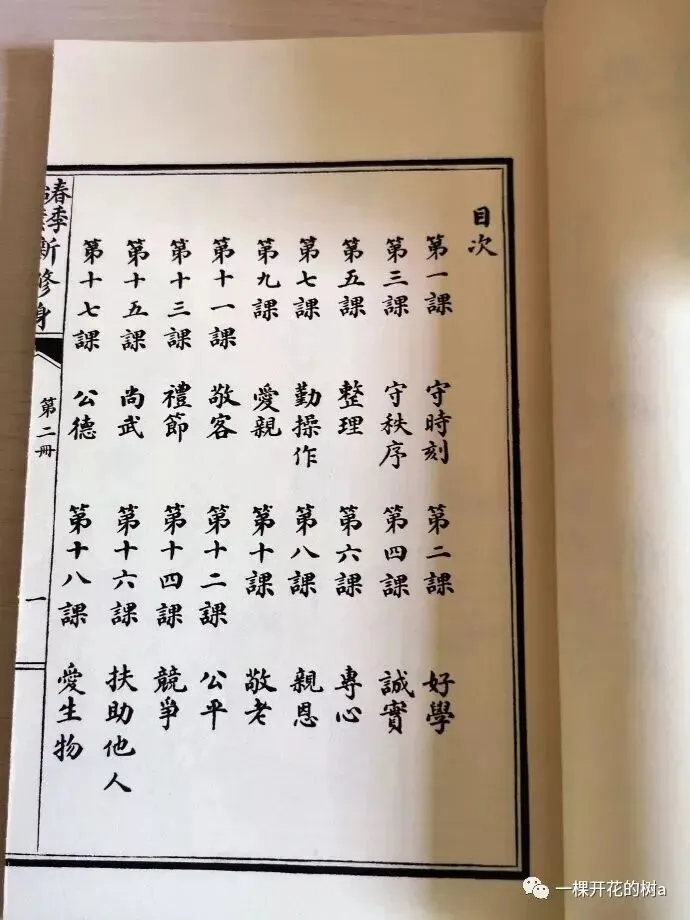 目次
第一課　守時刻　第二課　好學
第三課　守秩序　第四課　誠實
第五課　整理　第六課　專心
第七課　勤操作　第八課　親恩
第九課　愛親　第十課　敬老
第十一課　敬客　第十二課　公平
第十三課　禮節　第十四課　競爭
第十五課　尚武　第十六課　扶助他人
第十七課　公德　第十八課　愛生物
春季
新修身
第二冊
一
一棵开花的树a